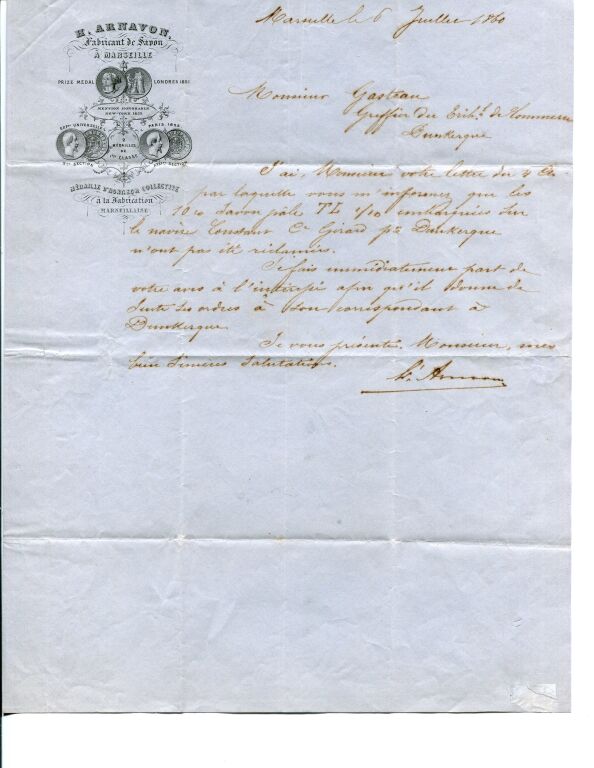 H. ARNAVON,
Fabricant de Savon
À MARSEILLE
PRIZE MEDAL LONDRES 1851
MENTION HONORABLE
NEW-YORK 1853
EXPON UNIVERSELLE PARIS 1855
2
MÉDAILLES
DE
1RE CLASSE
SECTION SECTION
MÉDAILLE D'HONNEUR COLLECTIVE
à la Fabrication
MARSEILLAISE
Marseille le 6 Juillet 1860
Monsieur Gasteau
Greffier du Tribl. de Commerce
Dunkerque
J'ai, Monsieur votre lettre du 4 Ct
par laquelle vous m'informez que les
10 Savon pâle TL 1/10 embarquées sur
le navire Constant Ce Girard pr Dunkerque
n'ont pas été réclamés.
Je fais immédiatement part de
votre avis à l'intéressé afin qu'il donne de
suite ses ordres à son correspondant à
Dunkerque
Je vous présente, Monsieur, mes
bien sincères salutations.
H. Arnavon